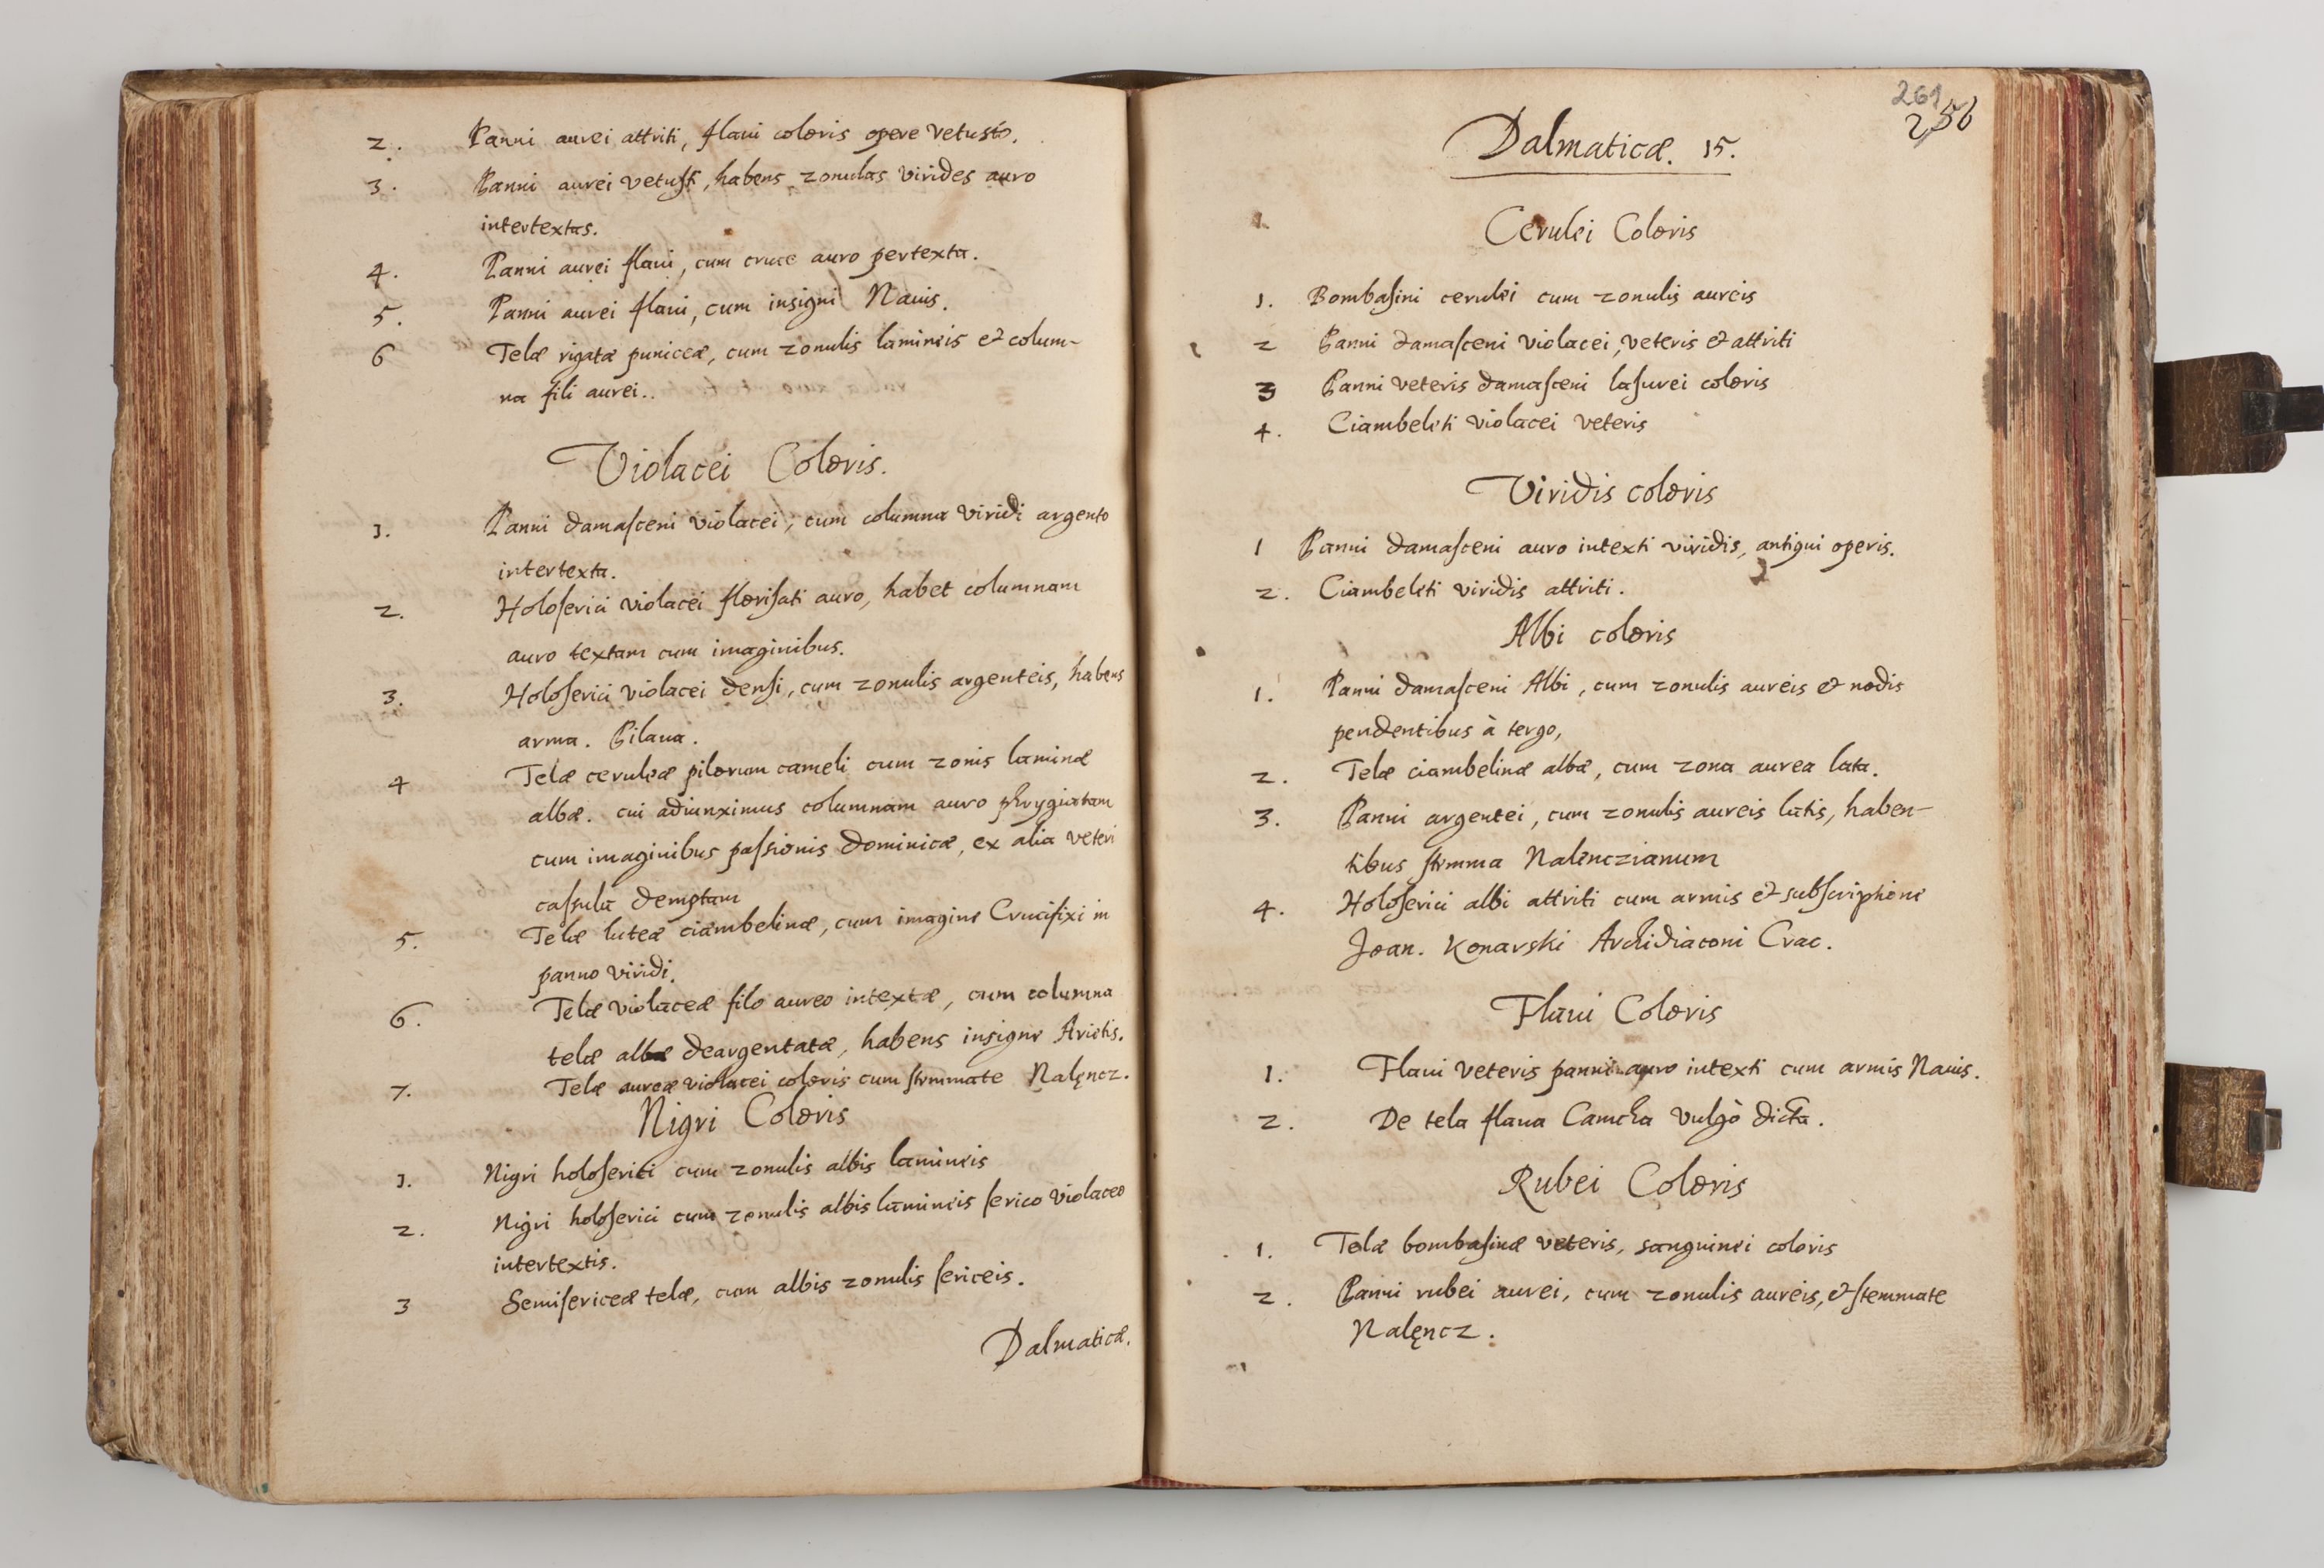 2. Panni aurei attriti, flaui coloris opere vetusto.
3. Panni aurei vetusti, habens zonulas virides auro
intertextas.
4. Panni aurei flaui, cum cruce auro pertexta.
5. Panni aurei flaui, cum insigni Nauis.
6 Telæ rigatæ puniceæ, cum zonulis lamineis et colum-
na fili aurei..
Violacei Coloris.
1. Panni damasceni violacei, cum columna viridi argento
intertexta.
2. Holoserici violacei florisati auro, habet columnam
auro textam cum imaginibus.
3. Holoserici violacei densi, cum zonulis argenteis, habens
arma. Pilaua.
4 Telæ ceruleæ pilorum cameli cum zonis laminæ
albæ. cui adiunximus columnam auro phrygiatam
cum imaginibus passionis Dominicæ, ex alia veteri
cassula demptam
5. Telæ luteæ ciambelinæ, cum imagine Crucifixi in
panno viridi.
6. Telæ violaceæ filo aureo intextæ, cum columna
telæ albæ deargentatæ, habens insigne Arietis.
7. Telæ aureæ violacei coloris cum stemmate Nalęncz.
Nigri Coloris
1. Nigri holoserici cum zonulis albis lamineis
2. Nigri holoserici cum zonulis albis lamineis serico violaceo
intertextis.
3 Semisericeæ telæ, cum albis zonulis sericeis.
Dalmaticæ.
261
256
Dalmaticæ. 15.
Cerulei Coloris
1. Bombasini cerulei cum zonulis aureis
2 Panni damasceni violacei, veteris et attriti
3 Panni veteris damasceni lasurei coloris
4. Ciambeleti violacei veteris
Viridis coloris
1 Panni damasceni auro intexti viridis, antiqui operis.
2. Ciambeleti viridis attriti.
Albi coloris
1. Panni damasceni Albi, cum zonulis aureis et nodis
pendentibus à tergo,
2. Telæ ciambelinæ albæ, cum zona aurea lata.
3. Panni argentei, cum zonulis aureis latis, haben-
tibus stemma Nalenczianum
4. Holoserici albi attriti cum armis et subscriptione
Joan. Konarski Archidiaconi Crac.
Flaui Coloris
1. Flaui veteris panni auro intexti cum armis Nauis.
2. De tela flaua Camcha vulgò dicta.
Rubei Coloris
1. Telæ bombasinæ veteris, sanguinei coloris
2. Panni rubei aurei, cum zonulis aureis, et stemmate
Nalęncz.